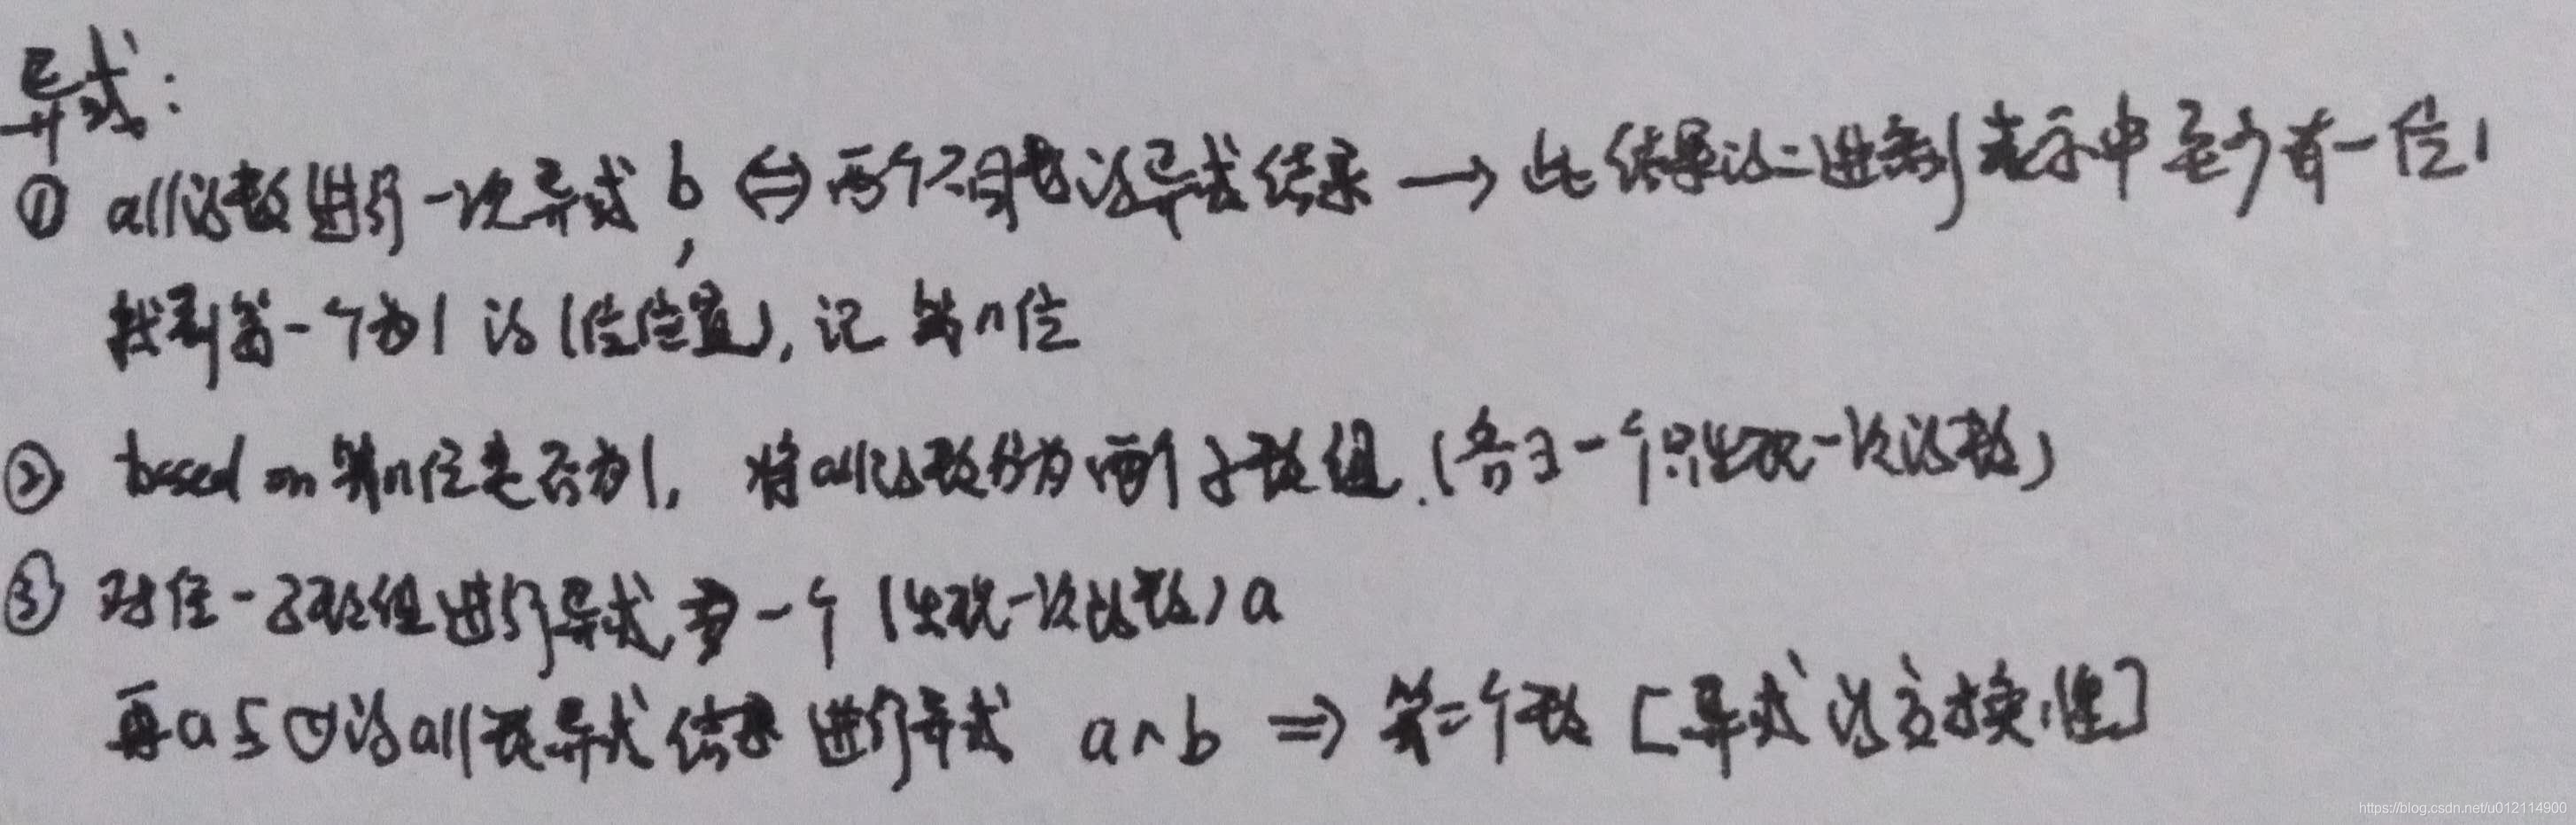 异或:
① all的数进行一次异或 b, ⇔ 两个不同数的异或结果 → 此结果的二进制表示中至少有一位1
找到第一个为1的(位位置), 记 第n位
② based on 第n位是否为1, 将all的数分为两个子数组.(各含一个只出现一次的数)
③ 对任一子数组进行异或, 一个(出现一次的数)a
再a与①的all数异或结果 进行异或 a^b ⇒ 第二个数 [异或的交换性]
https://blog.csdn.net/u012114900